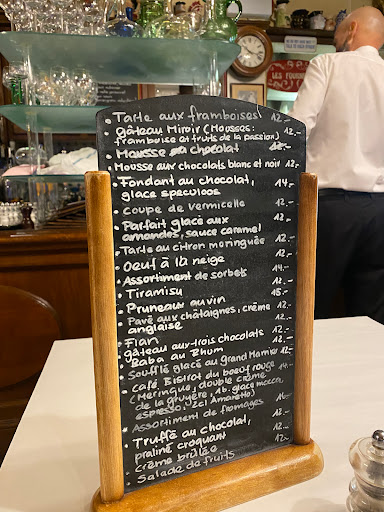 LES FOURNEAUX
Tarte aux framboises 12.-
gâteau Miroir (Mousses: 12.-
framboise et fruits de la passion)
Mousse au chocolat 12.-
Mousse aux chocolats blanc et noir 12.-
Fondant au chocolat, 14.-
glace speculoos
Coupe de vermicelle 12.-
Parfait glacé aux 12.-
amandes, sauce caramel
Tarte au citron meringuée 12.-
Oeuf à la neige 12.-
Assortiment de sorbets 14.-
Tiramisu 12.-
Pruneaux au vin 15.-
Pavé aux châtaignes, crème 12.-
anglaise
Flan 12.-
gâteau aux trois chocolats 12.-
Baba au Rhum
Soufflé glacé au Grand Marnier 12.-
Café Bistrot du boeuf rouge 14.-
(Meringue, double crème
de la gruyère, 1b. glace mocca,
espresso, 2cl Amaretto)
Assortiment de fromages
Truffé au chocolat,
praliné croquant 12.-
Crème brûlée
Salade de fruits